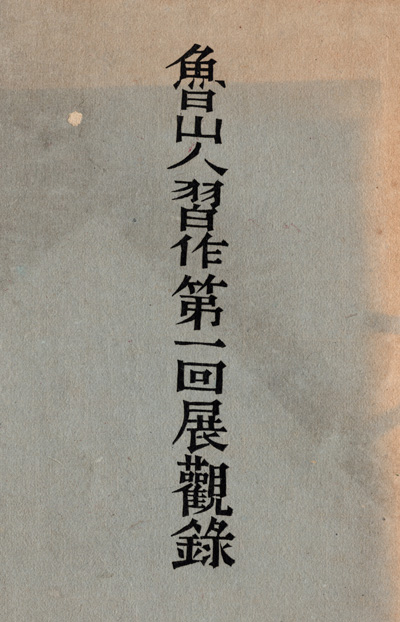 魯山人習作第一回展觀錄